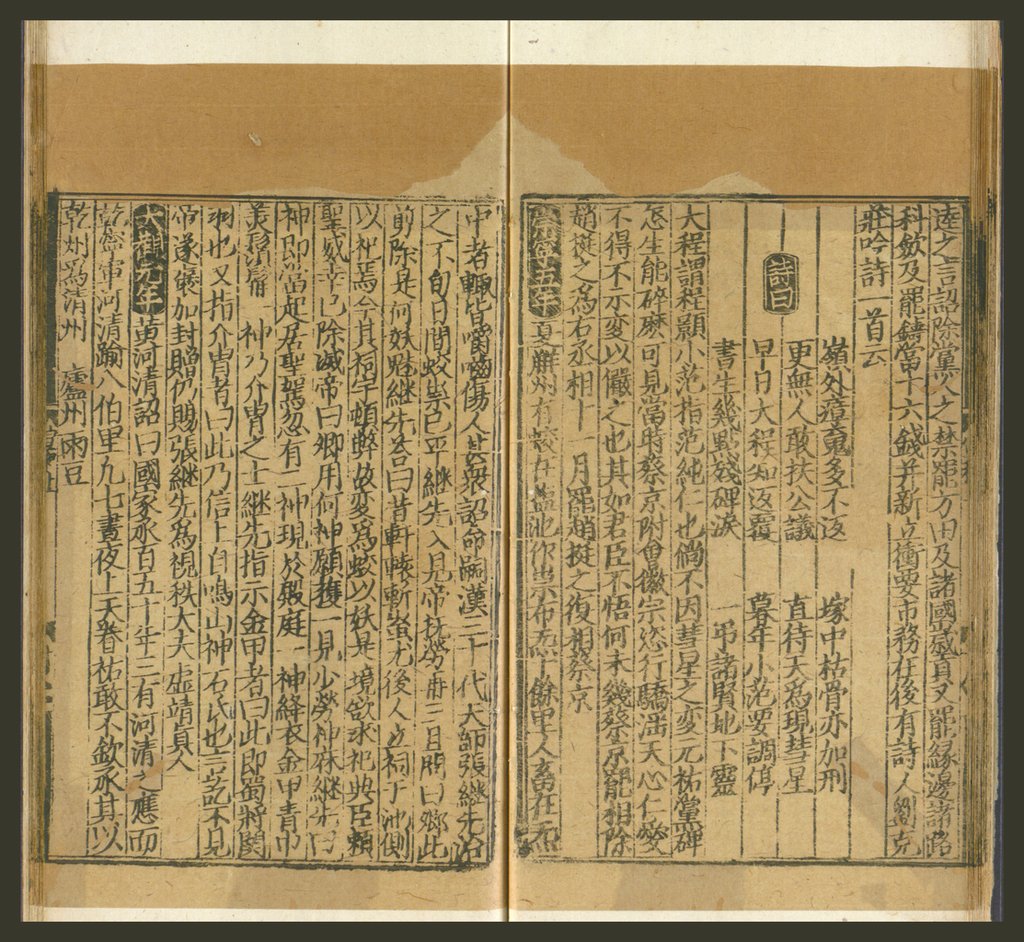 逵之言詔除黨人之禁罷方田及諸國歲貢又罷緣邊諸路
科斂及罷鑄當十六錢并新立衝要市務在後有詩人劉克
莊吟詩一首云
詩曰
嶺外瘴魂多不返　塚中枯骨亦加刑
更無人敢扶公議　直待天為現彗星
早日大程知返覆　暮年小范要調停
書生幾點殘碑淚　一弔諸賢地下靈
大程謂程顥小范指范純仁也倘不因彗星之變元祐黨碑
怎生能碎磨可見當時蔡京附會徽宗恣行驕滛天心仁愛
不得不示变以儆之也其如君臣不悟何未幾蔡京罷相除
趙挺之為右丞相十一月罷趙挺之復相蔡京
崇寧五年夏解州有蛟在盐池作祟布炁十餘里人畜在炁
中者輒皆嚼嚙傷人甚衆詔命嗣漢三十代大師張継先治
之不旬日間蛟祟已平継先入見帝撫勞再三且問曰卿此
剪除是何妖魅継先荅曰昔軒轅斬蚩尤後人立祠于池側
以祀焉今其祠宇頓弊故変爲蛟以妖是境欲求祀典臣頼
聖威幸已除滅帝曰卿用何神願獲一見少勞神庥継先曰
神即當起居聖駕忽有二神現於殿庭一神絳衣金甲青巾
美鬚髯一神乃介冑之士継先指示金甲者曰此即蜀將関
羽也又指介冑者曰此乃信上自鳴山神石氏也言訖不見
帝遂褒加封贈仍賜張継先為視秩大夫虛靖真人
大觀元年黄河清詔曰國家承百五十年三有河清之應而
乾寧軍河清踰八伯里九七晝夜上天眷祐敢不欽承其以
乾州為清州　廬州雨豆